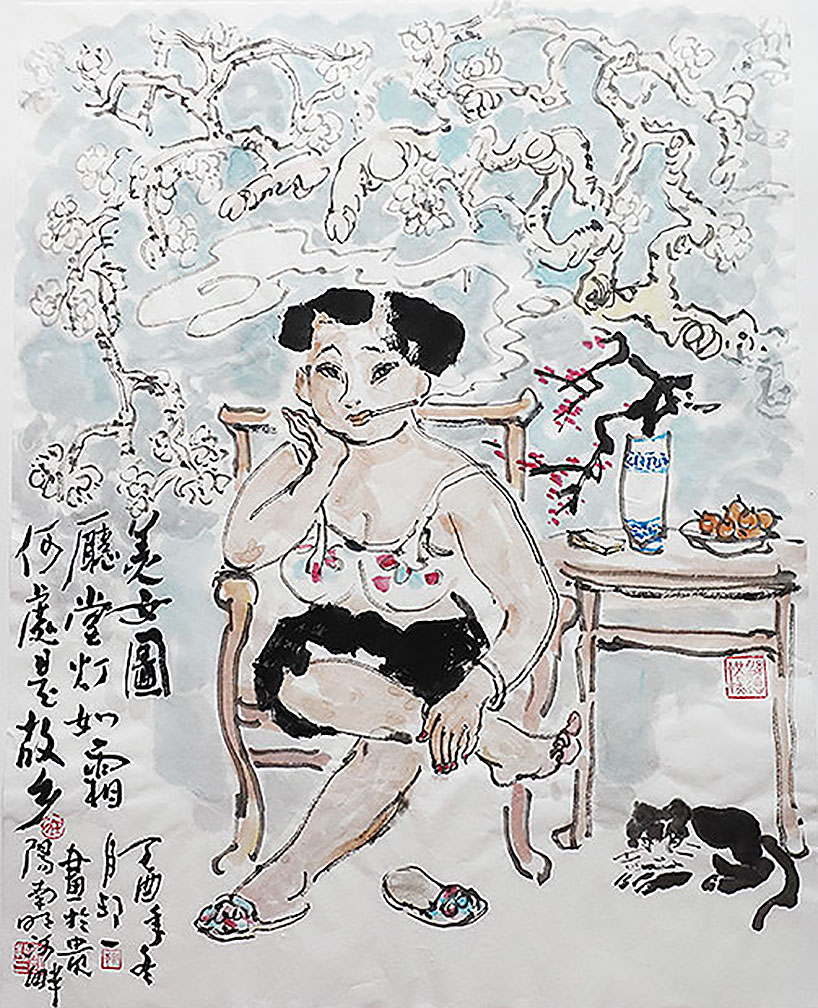 美女圖
廳堂灯如霜
何處是故乡
丁酉年冬
月
畫於贵
陽南明河畔